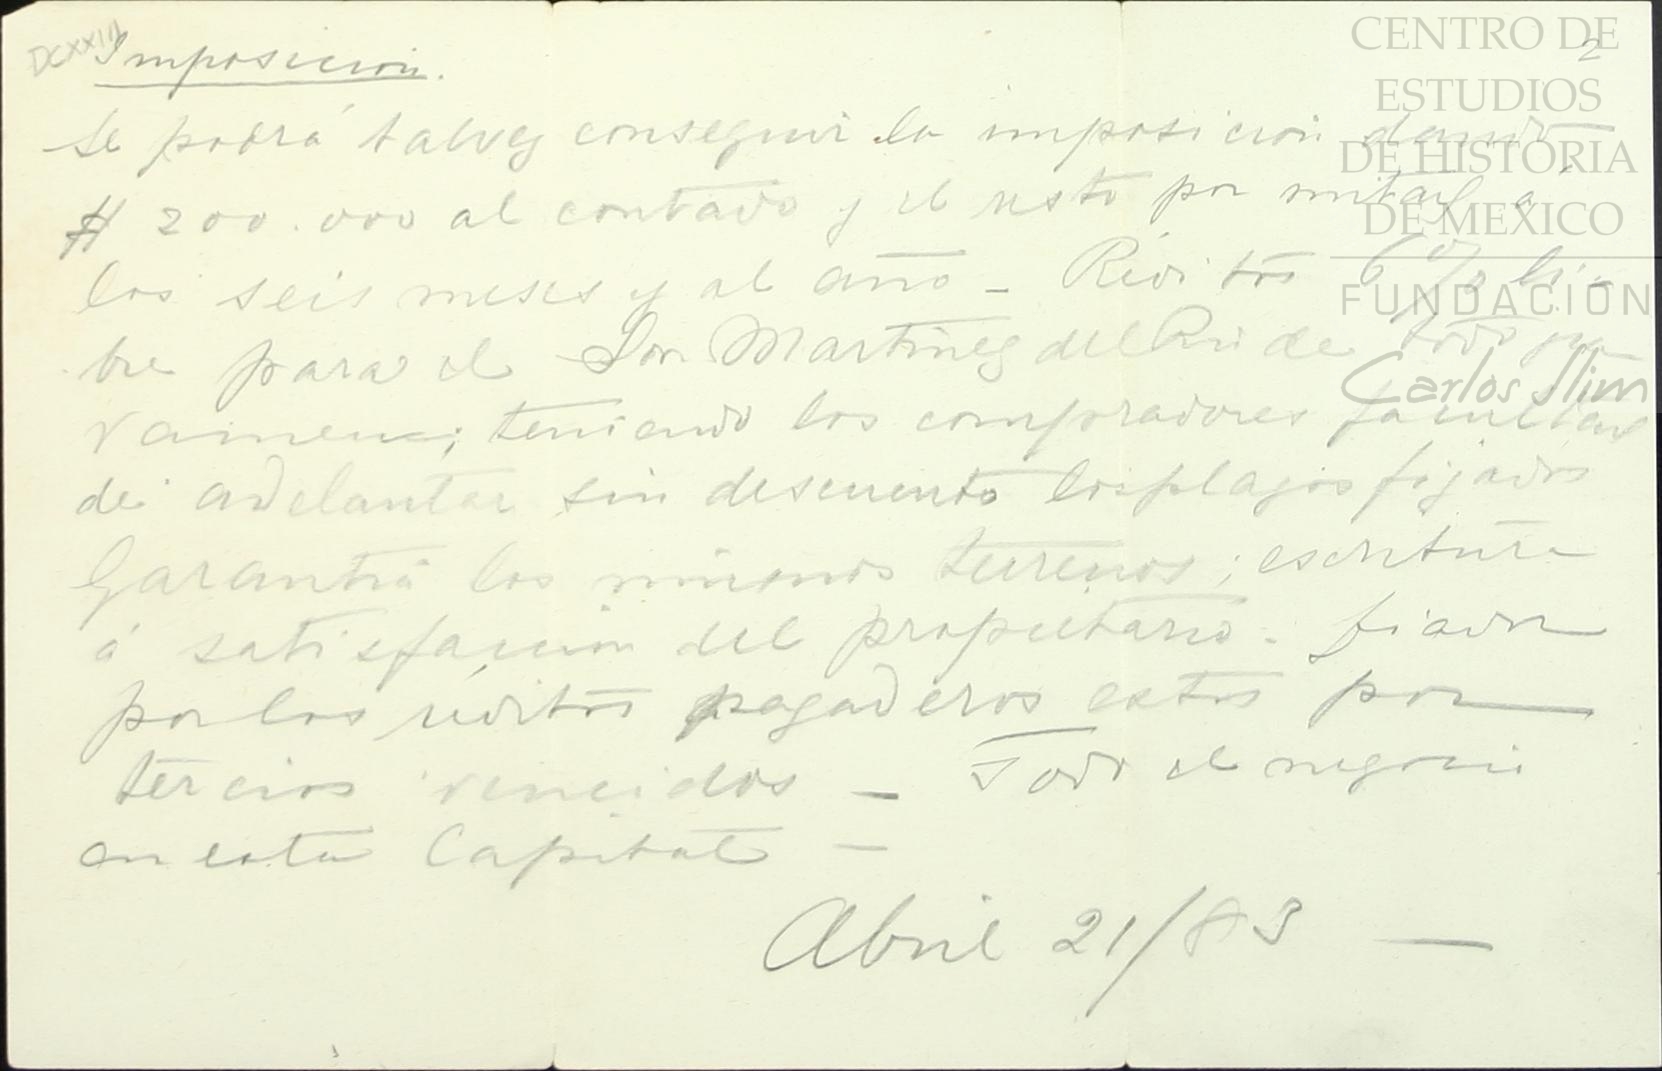 DCXXIII
2
Imposicion.
Se podrá talvez conseguir la imposicion dando
$ 200.000 al contado y el resto por mitad á
los seis meses y al año - Réditos 6 % li-
bre para el Sor Martinez del Rio de todo gra
vamen; teniendo los compradores facultad
de adelantar sin descuento los plazos fijados
Garantia los mismos terrenos; escritura
á satisfaccion del propietario - fiador
por los réditos pagaderos estos por
tercios vencidos - Todo el negocio
en esta Capital -
Abril 21/83 —
CENTRO DE
ESTUDIOS
DE HISTORIA
DE MEXICO
FUNDACIÓN
Carlos Slim